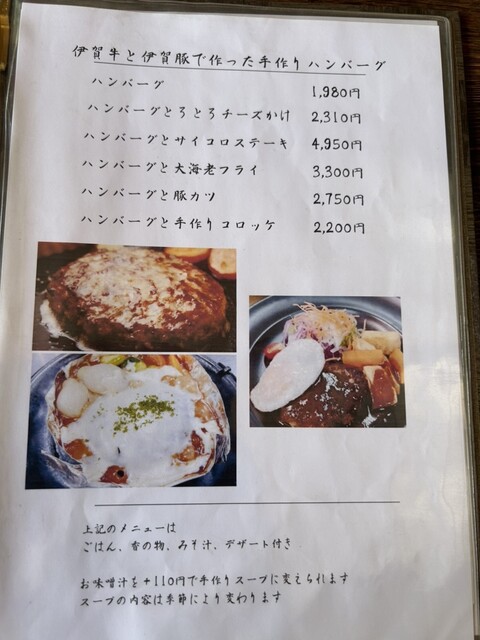 伊賀牛と伊賀豚で作った手作りハンバーグ
ハンバーグ 1,980円
ハンバーグとろとろチーズかけ 2,310円
ハンバーグとサイコロステーキ 4,950円
ハンバーグと大海老フライ 3,300円
ハンバーグと豚カツ 2,750円
ハンバーグと手作りコロッケ 2,200円
上記のメニューは
ごはん、香の物、みそ汁、デザート付き
お味噌汁を+110円で手作りスープに変えられます
スープの内容は季節により変わります